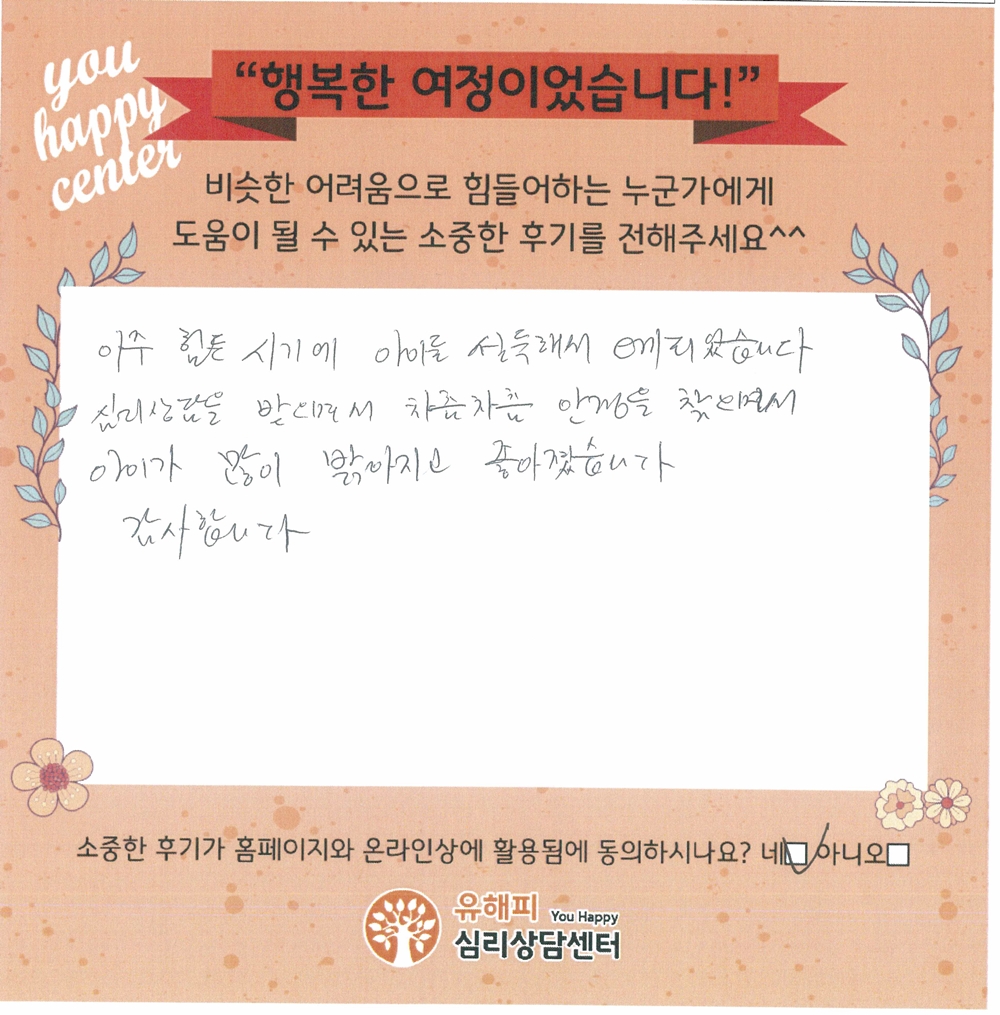 you
happy
center
“행복한 여정이었습니다!”
비슷한 어려움으로 힘들어하는 누군가에게
도움이 될 수 있는 소중한 후기를 전해주세요^^
아주 힘든 시기에 아이를 설득해서 데리왔습니다
심리상담을 받으면서 차츰차츰 안정을 찾으면서
아이가 많이 밝아지고 좋아졌습니다
감사합니다
소중한 후기가 홈페이지와 온라인상에 활용됨에 동의하시나요? 네☑ 아니오☐
유해피 You Happy
심리상담센터